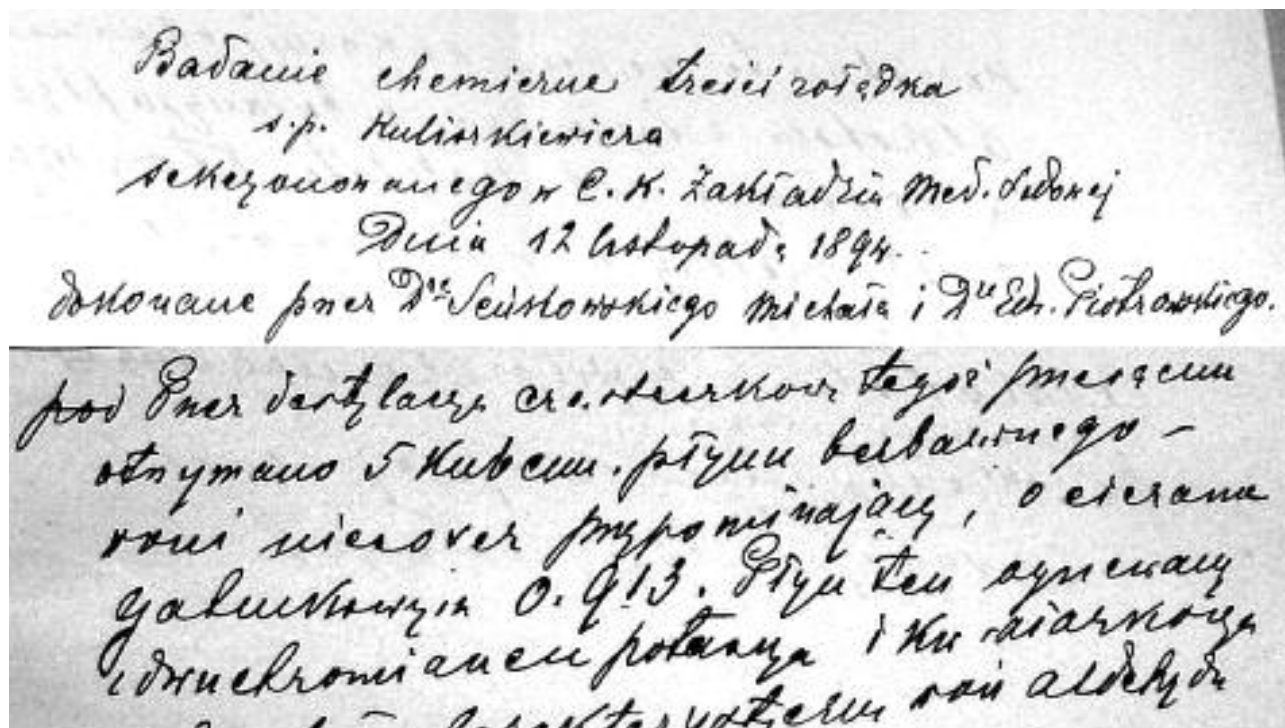 Badanie chemiczne treści żołądka
s.p. Kuliszkiewicza
sekcyonowanego w C. K. Zakładzie Med. Sądowej
Dnia 12 listopada 1894.
dokonane przez Dra Seńkowskiego Michała i Dra Ed. Piotrowskiego.
pod Przez destylacyę cząsteczkową tegoż
otrzymano 5 Kub cm. płynu bezbarwnego –
woni przypominający, o ciężarze
gatunkowym 0.913. Płyn ten ogrzewany
z dwuchromianem potasu i Kw siarkowym
woni aldehydu